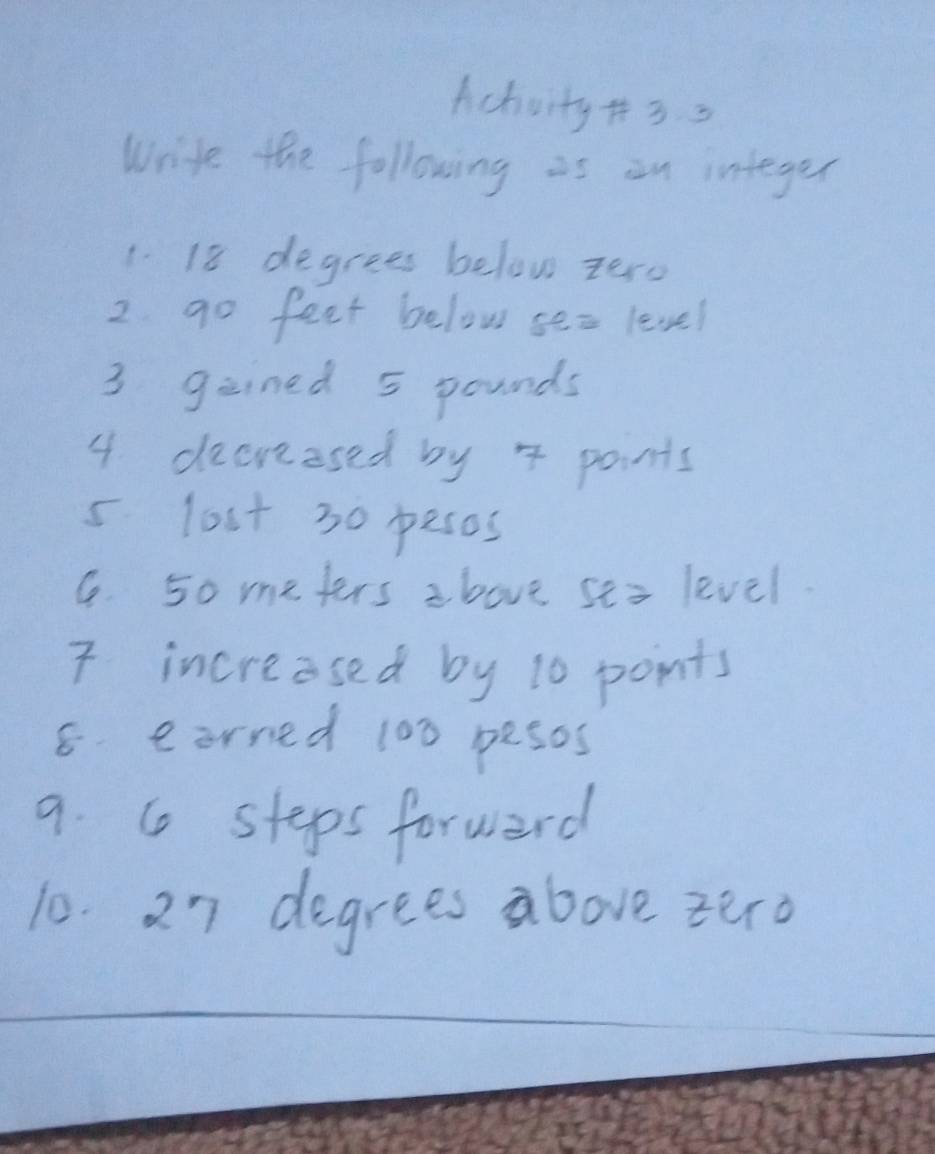 Activity # 3.3
Write the following as an integer
1. 18 degrees below zero
2. 90 feet below sea level
3 gained 5 pounds
4 decreased by 7 points
5. lost 30 pesos
6. 50 meters above sea level.
7 increased by 10 points
8. earned 100 pesos
9. 6 steps forward
10. 27 degrees above zero